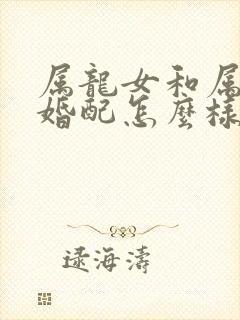 属龍女和属
婚配怎麼樣
逯海濤